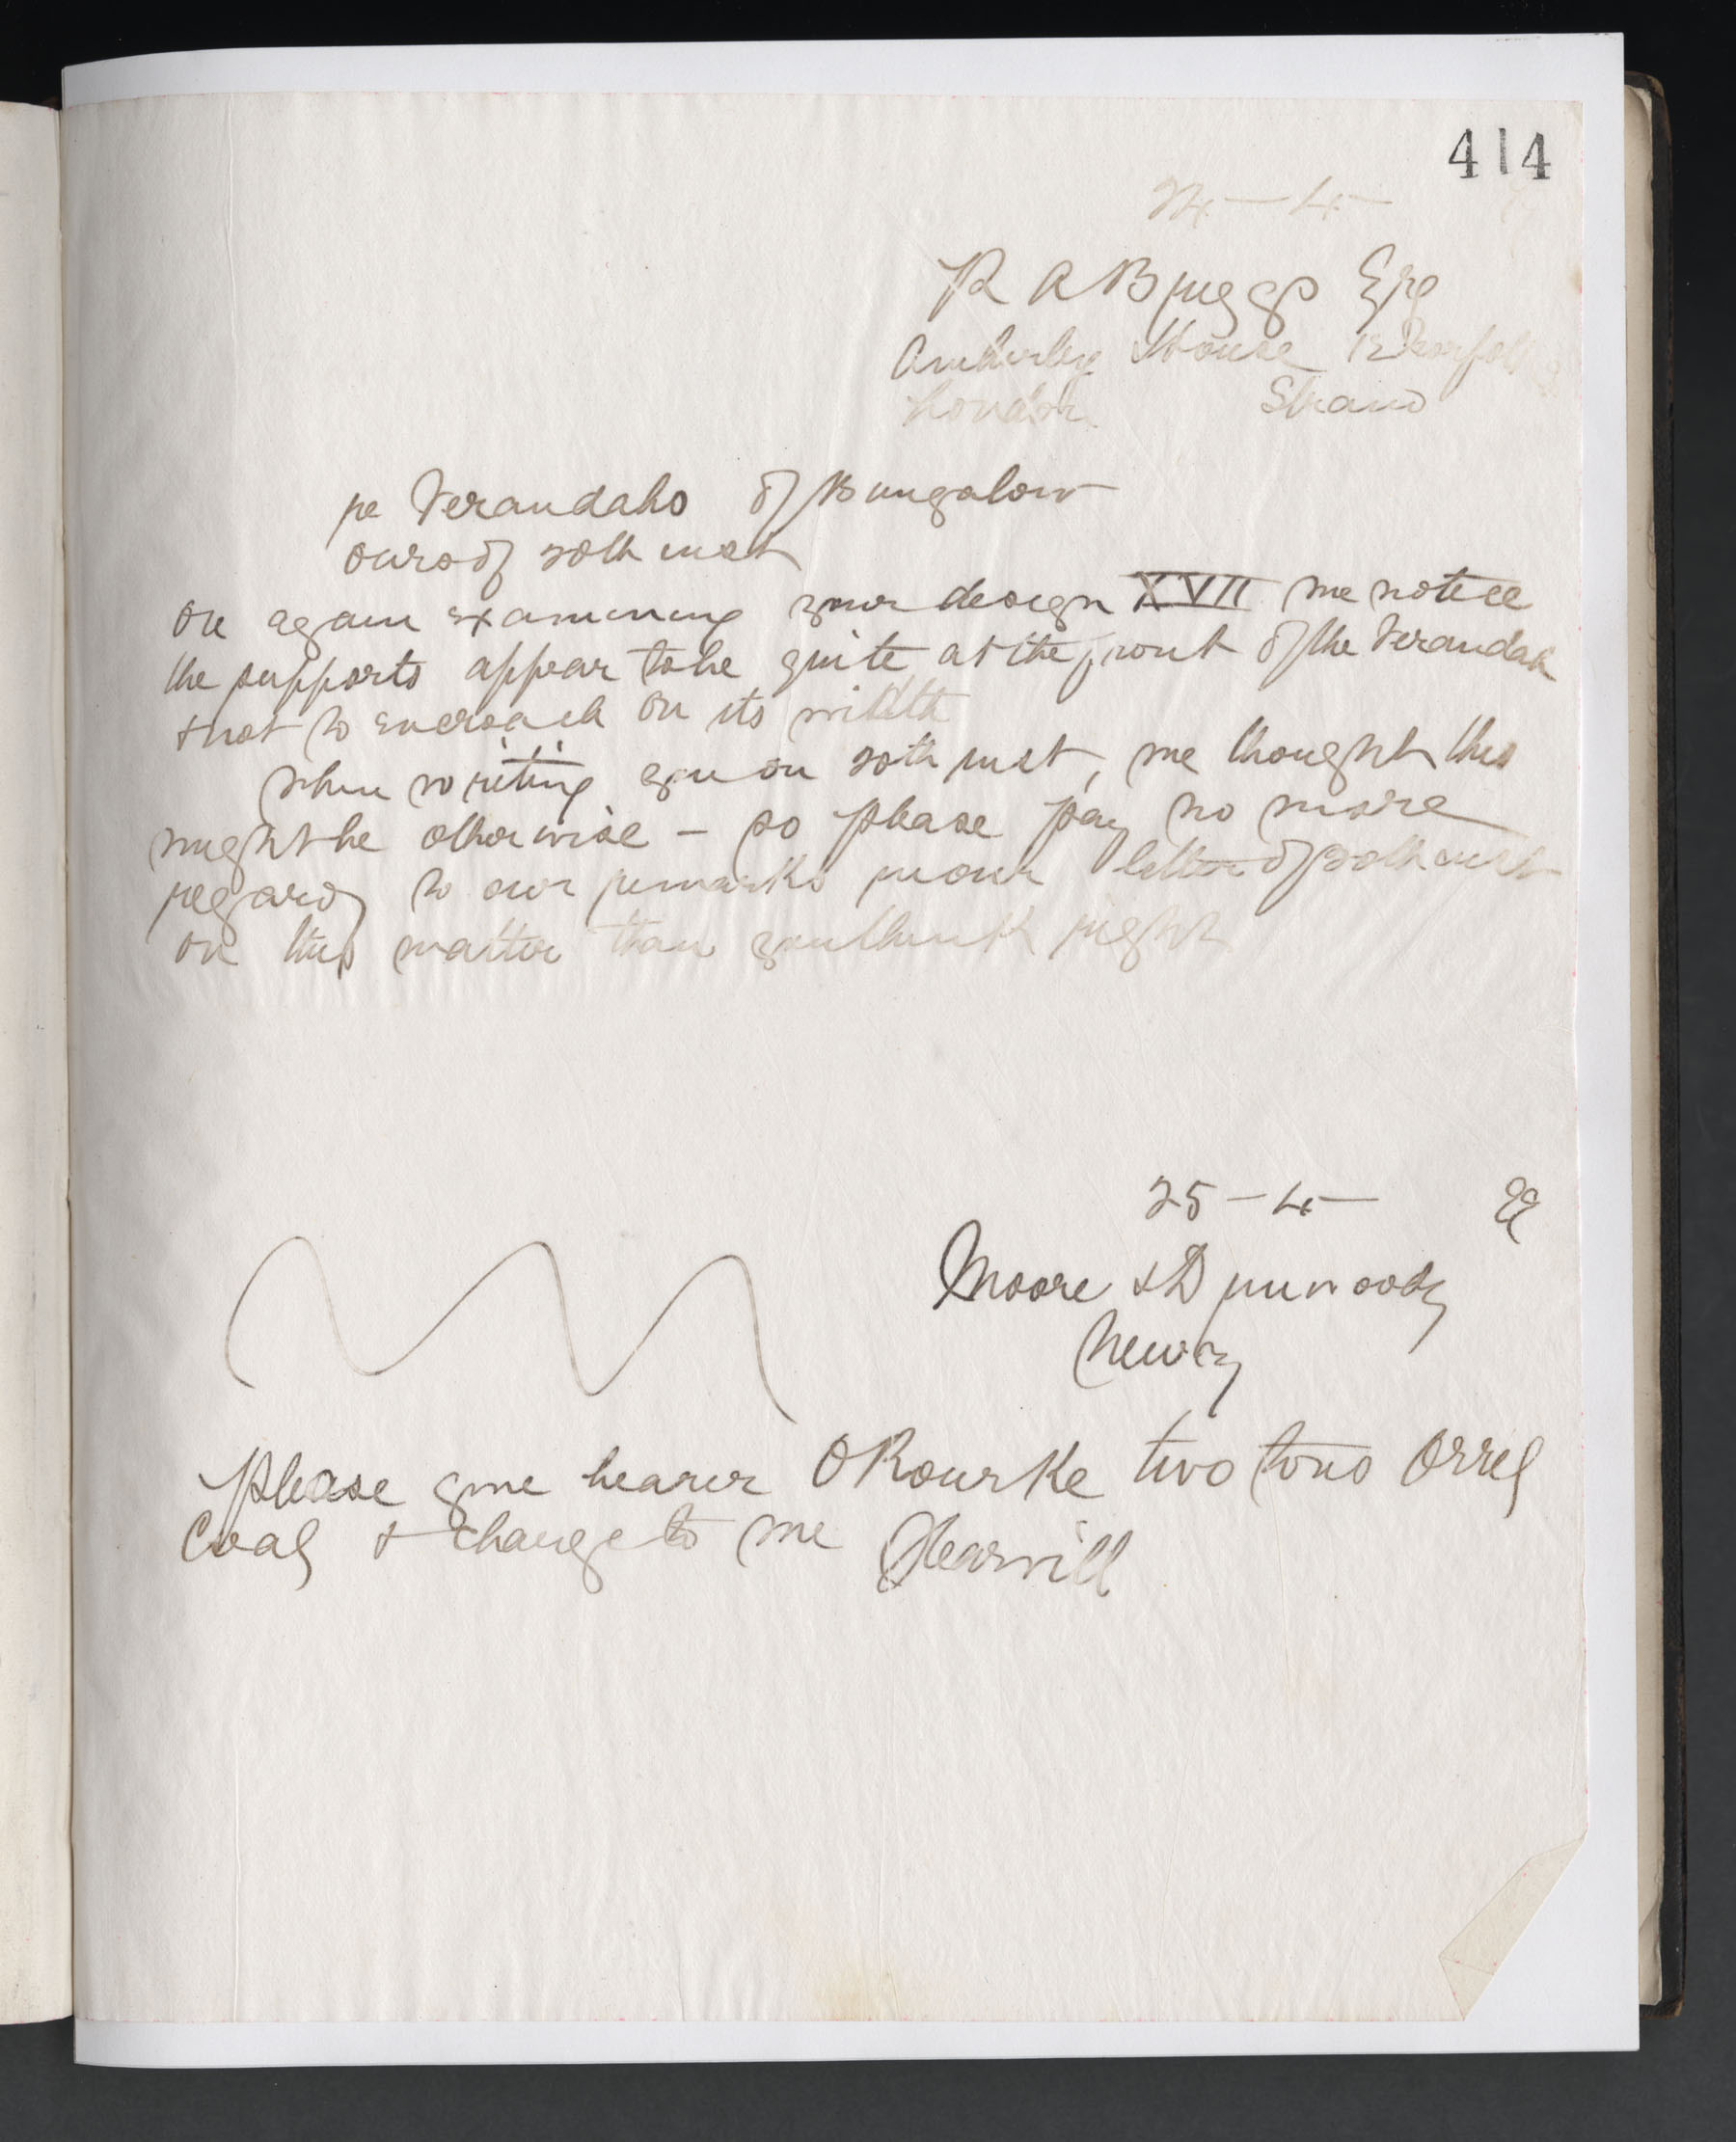 414
24 - 4 -
R A Briggs Esq
Amberley House 12 Norfolk
London Strand
re Verandahs of Bungalow
ours of 20th inst
On again examining your design XVII we notice
the supports appear to be quite at the front of the Verandah
& not to encroach on its width
When writing you on 20th inst, we thought this
might be otherwise - so please pay no more
regard to our remarks in our letter of 20th inst
on this matter than you think right
25 - 4 - 99
Moore & Dunwoody
Newry
Please give bearer O Rourke two tons Orrel
Coal & charge to me